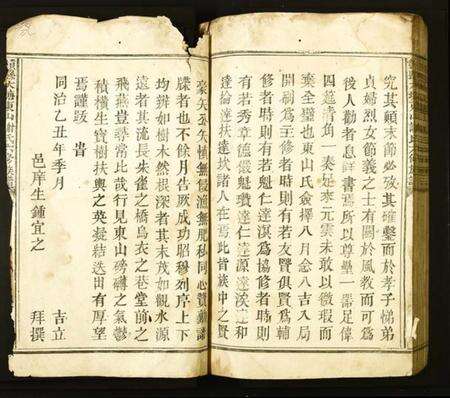 究其顛末節必攷其確鑿而於孝子悌弟
貞婦烈女節義之士有關於風教而可為
後人勸者悉詳書焉所以尊壘一器足偉
四蓮青角一奏足奉元雲未敢以微瑕而
棄全璧也東山氏僉擇八月念八吉入局
開刷為主修者時則有若友賢俱賢為輔
修者時則有若魁仁達溟為協修者時則
有若秀章德徽魁瓚達仁達源達渓達和
達倫達扶達坎諸人在焉此皆族中之賢
豪矢公矢慎無侵漁無肥私同心贊勷譜
牒者也不餘月告厥成功昭穆列序上下
均辨如樹木然根深者其末茂如觀水源
遠者其流長朱雀之橋烏衣之巷堂前之
飛燕豈尋常此哉行見東山磅礡之氣鬱
積橫生寶樹扶輿之英凝結迭出有厚望
焉謹跋 旹
同治乙丑年季月 吉立
邑庠生鍾宜之 拜撰